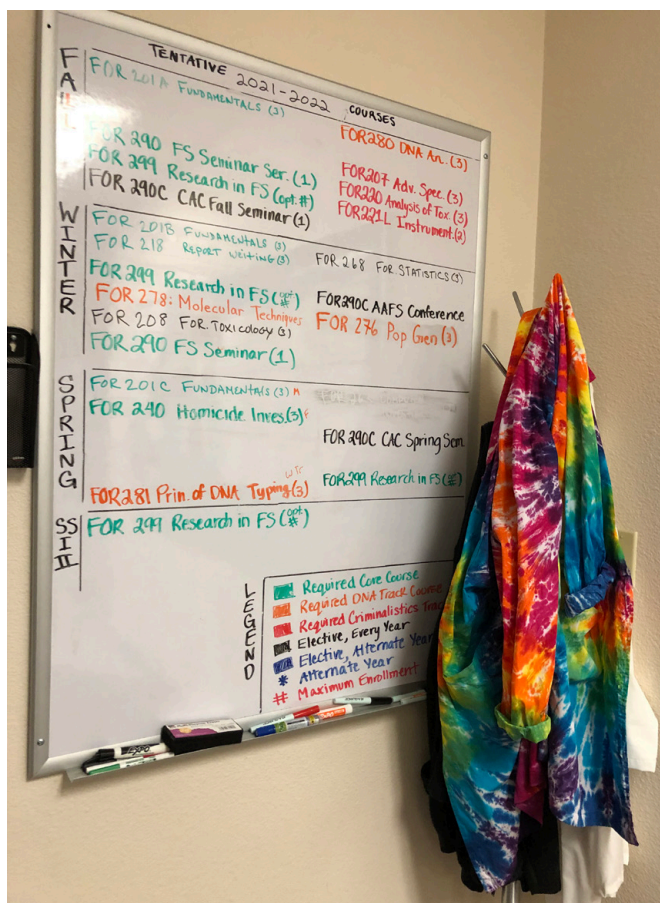 TENTATIVE 2021-2022 COURSES
FALL
FOR 201A FUNDAMENTALS (3)
FOR 290 FS Seminar Ser. (1)
FOR 299 Research in FS (opt. #)
FOR 290C CAC Fall Seminar (1)
FOR280 DNA An. (3)
FOR207 Adv. Spec. (3)
FOR220 Analysis of Tox. (3)
FOR221L Instrument. (2)
WINTER
FOR 201B FUNDAMENTALS (3)
FOR 218 REPORT WRITING (3)
FOR 299 Research in FS (opt. #)
FOR 278: Molecular Techniques
FOR 208 FOR. TOXICOLOGY (3)
FOR 290 FS Seminar (1)
FOR 268 FOR STATISTICS (3)
FOR290C AAFS Conference
FOR 276 Pop Gen (3)
SPRING
FOR 201C FUNDAMENTALS (3)
FOR 240 Homicide Inves. (3)
FOR281 Prin. of DNA Typing (3)
FOR 290C CAC Spring Sem.
FOR299 Research in FS (#)
SSII
FOR 299 Research in FS (opt. #)
LEGEND
Required Core Course
Required DNA Track Course
Required Criminalistics Trac
Elective, Every Year
Elective, Alternate Year
* Alternate Year
# Maximum Enrollment
EXPO